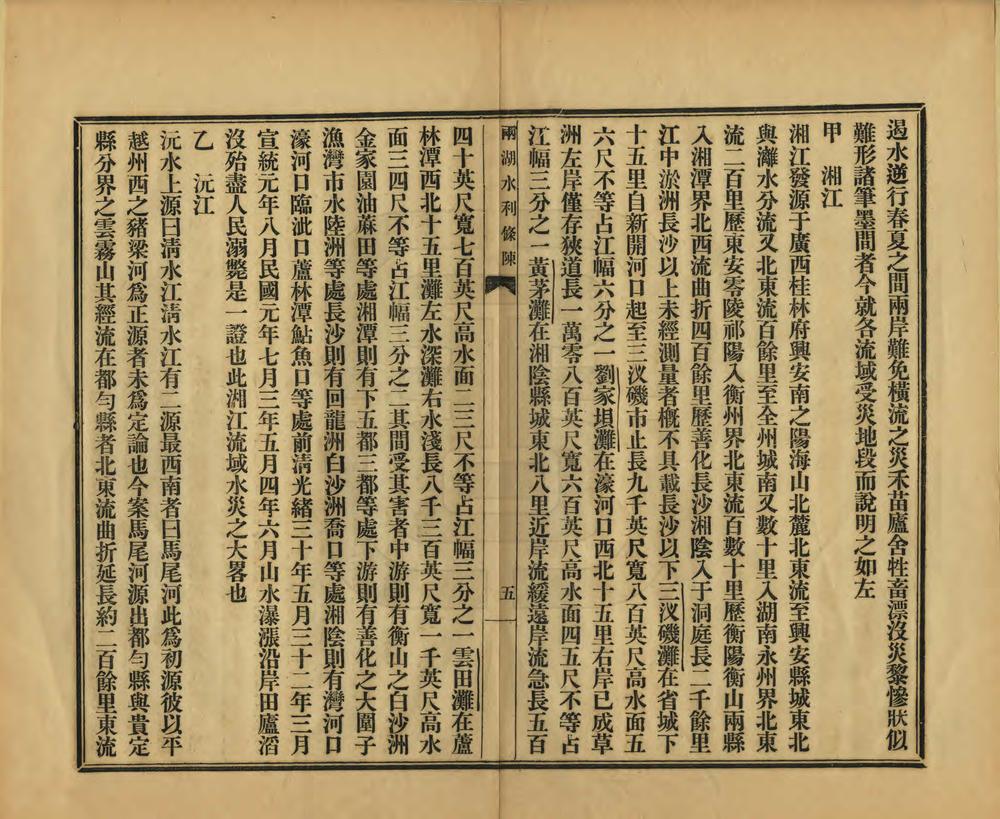 遏水逆行春夏之間兩岸難免橫流之災禾苗廬舍牲畜漂沒災黎慘狀似
難形諸筆墨間者今就各流域受災地段而說明之如左
甲　湘江
湘江發源于廣西桂林府興安南之陽海山北麓北東流至興安縣城東北
與灕水分流又北東流百餘里至全州城南又數十里入湖南永州界北東
流二百里歷東安零陵祁陽入衡州界北東流百數十里歷衡陽衡山兩縣
入湘潭界北西流曲折四百餘里歷善化長沙湘陰入于洞庭長二千餘里
江中淤洲長沙以上未經測量者概不具載長沙以下三汊磯灘在省城下
十五里自新開河口起至三汊磯市止長九千英尺寬八百英尺高水面五
六尺不等占江幅六分之一劉家垻灘在濠河口西北十五里右岸已成草
洲左岸僅存狹道長一萬零八百英尺寬六百英尺高水面四五尺不等占
江幅三分之一黃茅灘在湘陰縣城東北八里近岸流緩遠岸流急長五百
兩湖水利條陳　五
四十英尺寬七百英尺高水面二三尺不等占江幅三分之一雲田灘在蘆
林潭西北十五里灘左水深灘右水淺長八千三百英尺寬一千英尺高水
面三四尺不等占江幅三分之二其間受其害者中游則有衡山之白沙洲
金家園油蔴田等處湘潭則有下五都三都等處下游則有善化之大圍子
漁灣市水陸洲等處長沙則有回龍洲白沙洲喬口等處湘陰則有灣河口
濠河口臨泚口蘆林潭鮎魚口等處前清光緒三十年五月三十二年三月
宣統元年八月民國元年七月三年五月四年六月山水瀑漲沿岸田廬滔
沒殆盡人民溺斃是一證也此湘江流域水災之大畧也
乙　沅江
沅水上源曰淸水江淸水江有二源最西南者曰馬尾河此爲初源彼以平
越州西之豬梁河爲正源者未爲定論也今案馬尾河源出都勻縣與貴定
縣分界之雲霧山其經流在都勻縣者北東流曲折延長約二百餘里東流